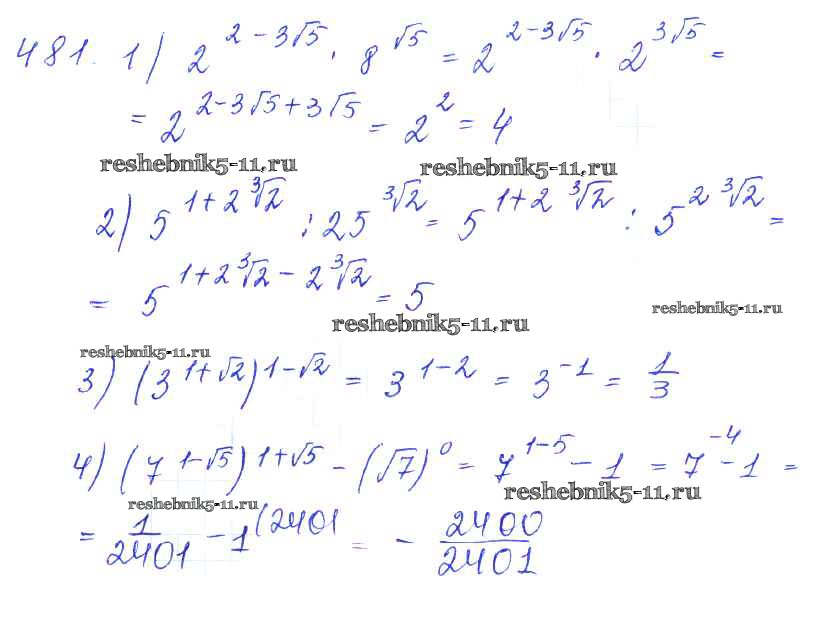 481. 1) 2^(2-3√5) · 8^(√5) = 2^(2-3√5) · 2^(3√5) =
= 2^(2-3√5+3√5) = 2^2 = 4
reshebnik5-11.ru reshebnik5-11.ru
2) 5^(1+2∛2) : 25^(∛2) = 5^(1+2∛2) : 5^(2∛2) =
= 5^(1+2∛2-2∛2) = 5
reshebnik5-11.ru reshebnik5-11.ru
reshebnik5-11.ru
3) (3^(1+√2))^(1-√2) = 3^(1-2) = 3^(-1) = 1/3
4) (7^(1-√5))^(1+√5) - (√7)^0 = 7^(1-5) - 1 = 7^(-4) - 1 =
reshebnik5-11.ru reshebnik5-11.ru
= 1/2401 - 1^(2401 = - 2400/2401